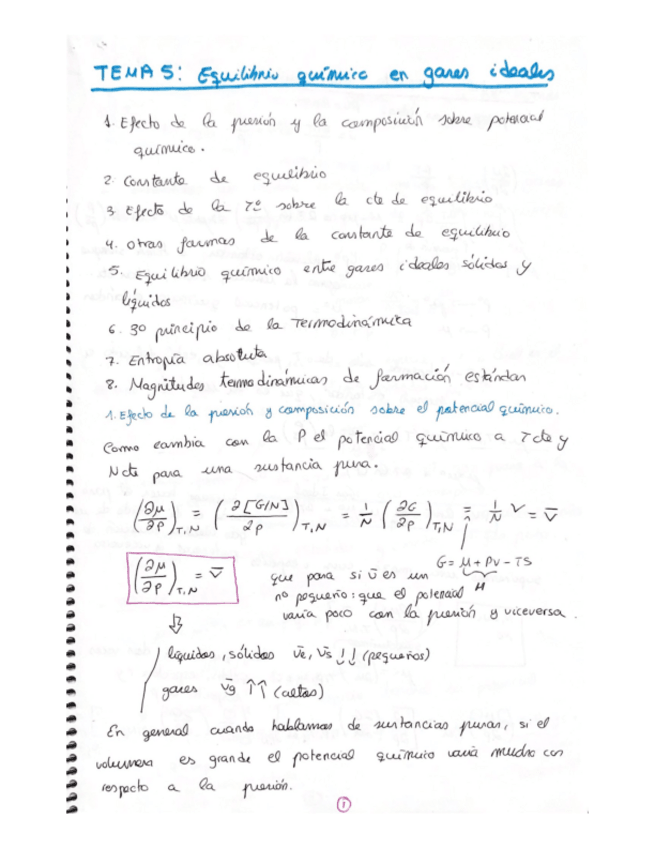 TEMA 5: Equilibrio químico en gases ideales
1. Efecto de la presión y la composición sobre potencial
químico.
2. Constante de equilibrio
3. Efecto de la Tº sobre la cte de equilibrio
4. otras formas de la constante de equilibrio
5. Equilibrio químico entre gases ideales sólidos y
líquidos
6. 3º principio de la Termodinámica
7. Entropía absoluta
8. Magnitudes termodinámicas de formación estándar
1. Efecto de la presión y composición sobre el potencial químico.
Como cambia con la P el potencial químico a T cte y
N cte para una sustancia pura.
(∂μ/∂P)T,N = (∂[G/N]/∂P)T,N = 1/N (∂G/∂P)T,N = 1/N V = V̄
G = M + PV - TS
H
(∂μ/∂P)T,N = V̄
que pasa si v̄ es un
nº pequeño: que el potencial
varía poco con la presión y viceversa.
líquidos, sólidos v̄e, v̄s ↓↓ (pequeños)
gases v̄g ↑↑ (altos)
En general cuando hablamos de sustancias puras, si el
volumen es grande el potencial químico varía mucho con
respecto a la presión.
1